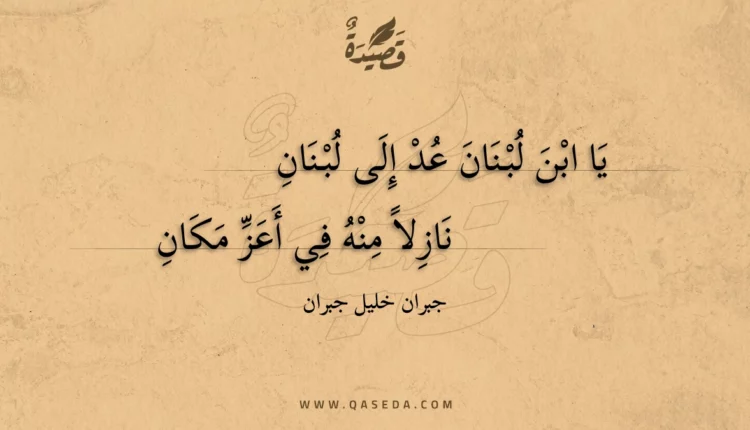 قَصِيْدَةٌ
يَا ابْنَ لُبْنَانَ عُدْ إِلَى لُبْنَانِ
نَازِلاً مِنْهُ فِي أَعَزِّ مَكَانِ
جبران خليل جبران
WWW.QASEDA.COM